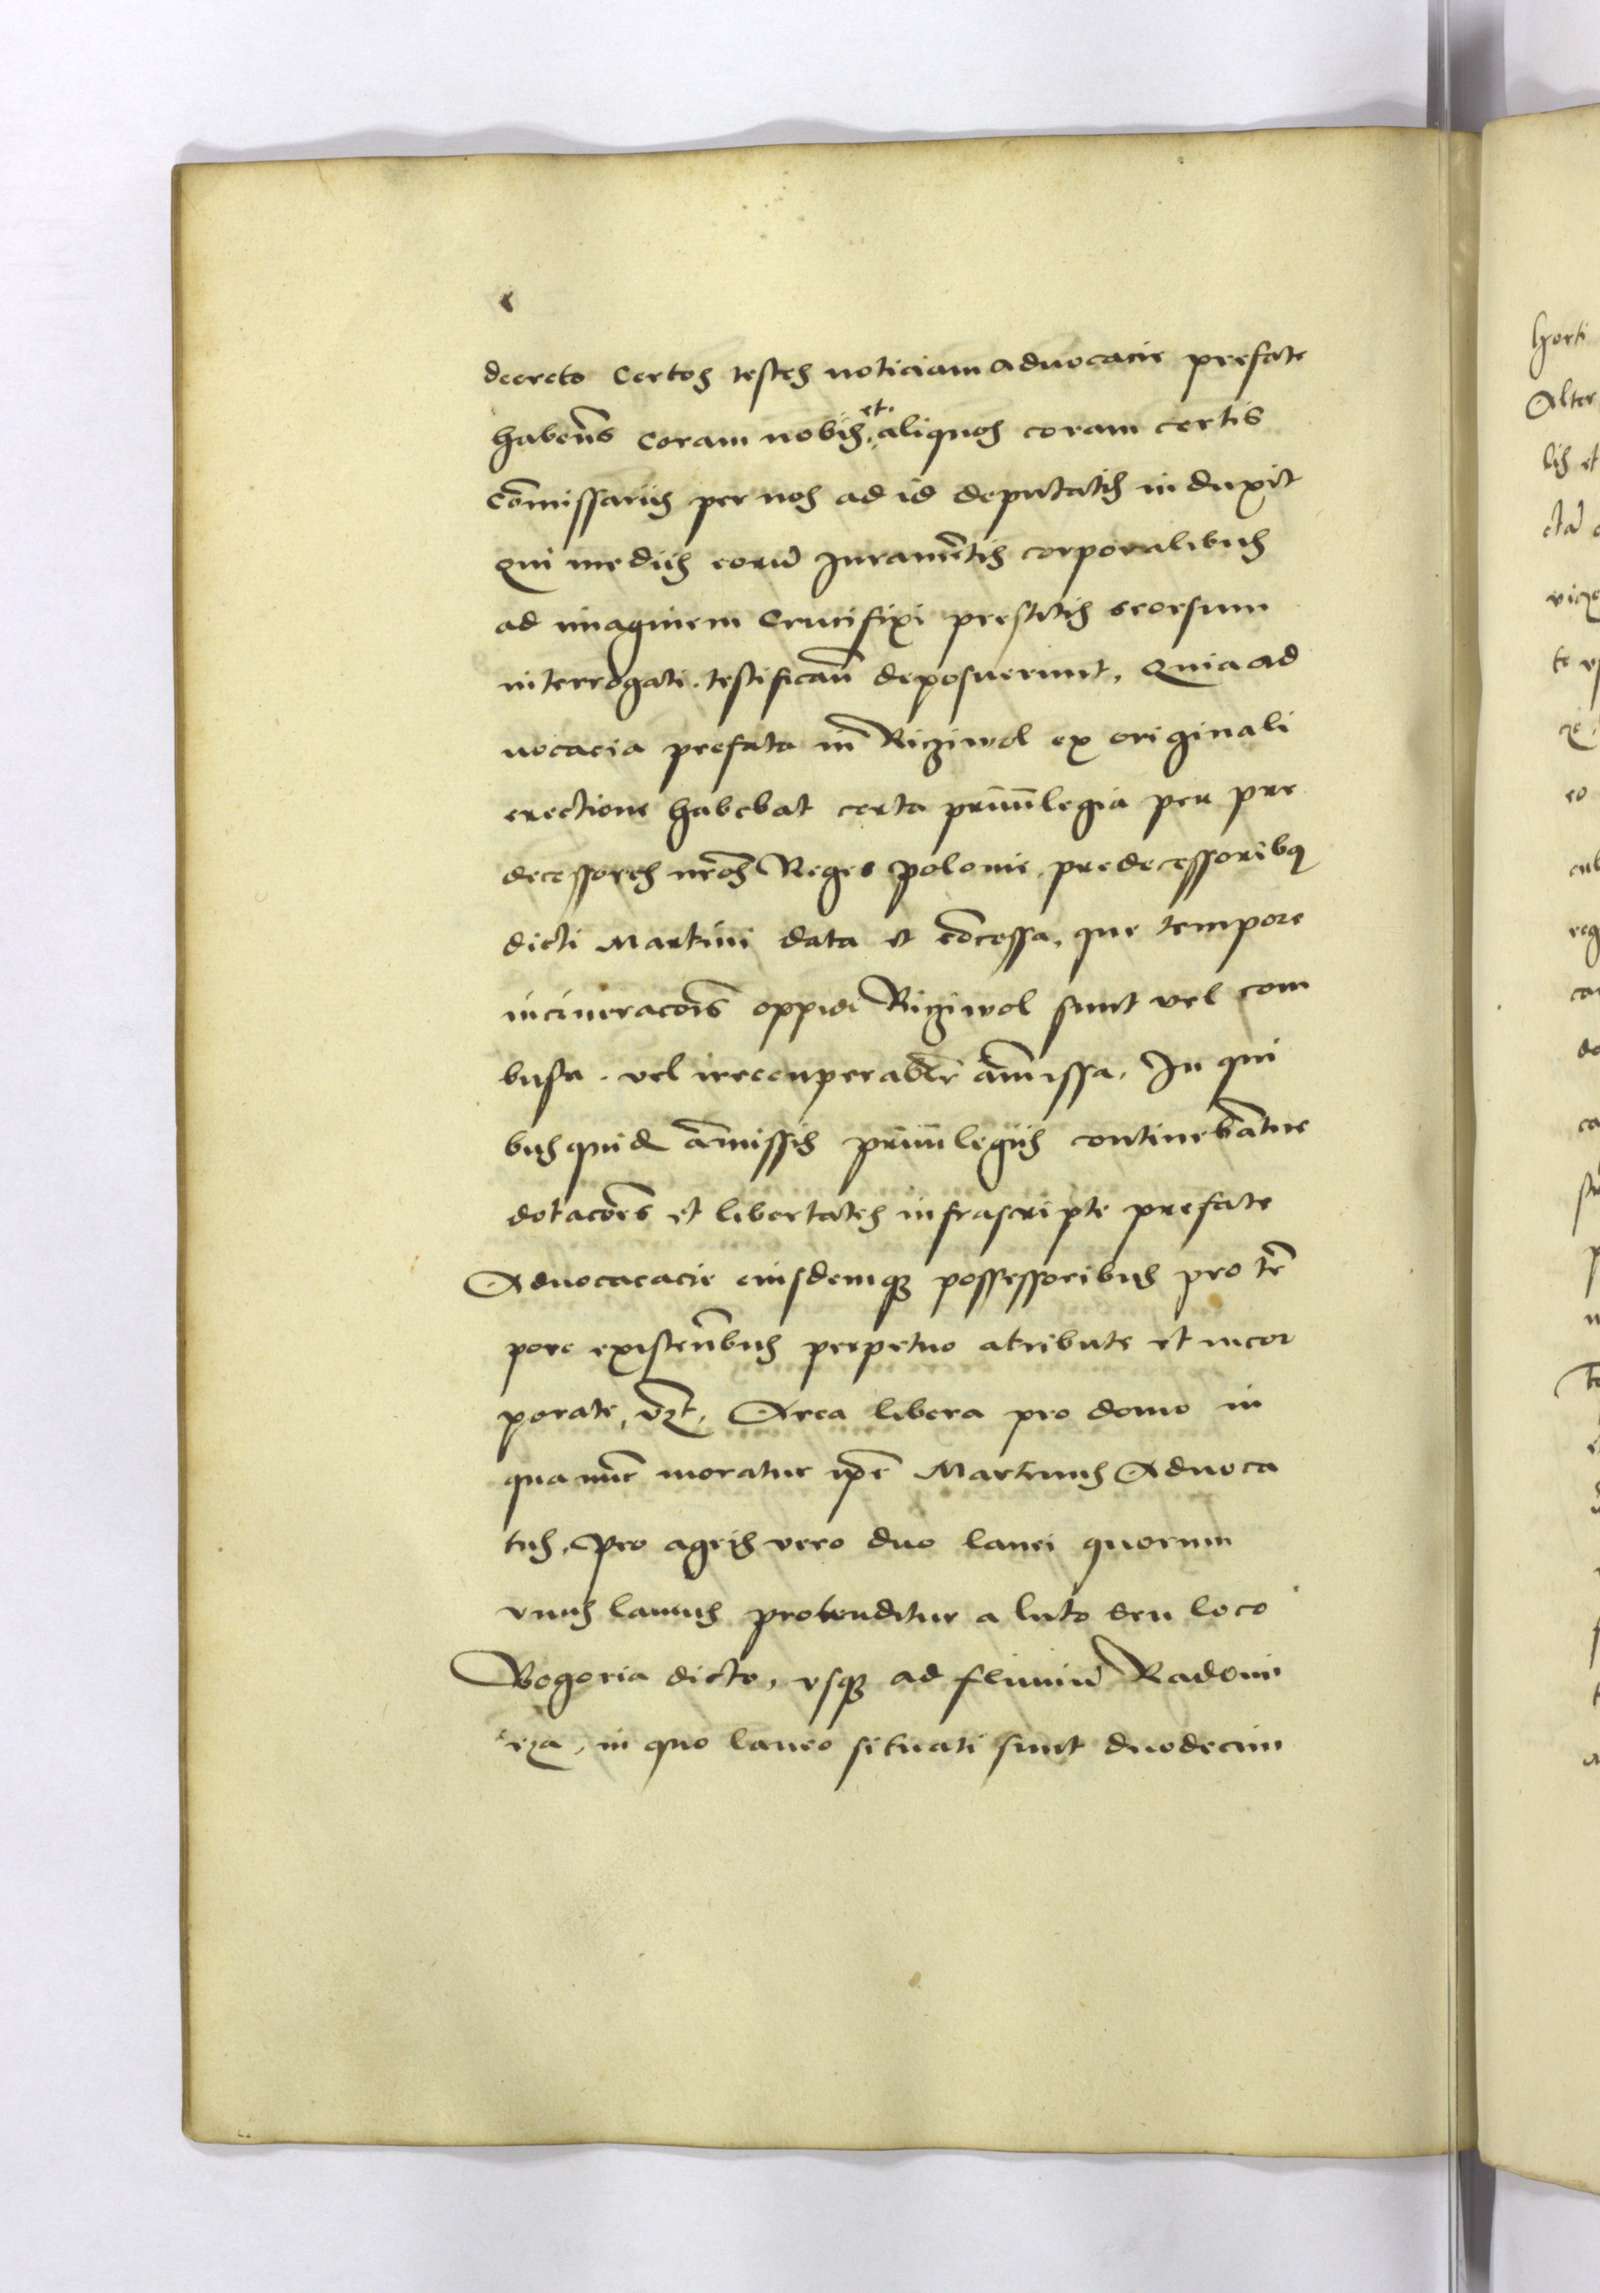 decreto Certos testes noticiam aduocacie prefate
haben̄s Coram nobis et aliquos coram certis
Com̄issariis per nos ad id deputatis induxit
Qui mediis eorū Juramētis corporalibus
ad imaginem Crucifixi prestitis seorsum
interrogati. testifican̄ deposuerunt, Quia ad
uocacia prefata in Riziwol ex originali
erectione habebat certa priuilegia per pre
decessores nr̄os Reges polonie predecessoribq
dicti Martini data et cōcessa, que tempore
incineracōis oppidi Riziwol sunt vel com
busta. vel irrecuperabilr̄ am̄issa. In qui
bus quid am̄issis priuilegiis continebātur
dotacōes et libertates infrascripte prefate
Aduocacacie eiusdemqȝ possessoribus pro tē
pore existen̄bus perpetuo atribute et incor
porate, vzt, Area libera pro domo in
qua nūc moratur ip̄e Martinus Aduoca
tus, Pro agris vero duo lanei quorum
vnus laneus protenditur a luto seu loco
Bogoria dicto, vsqȝ ad fluuiū Radomi
rza, in quo laneo situati sunt duodecim
horti
Alter
lis et